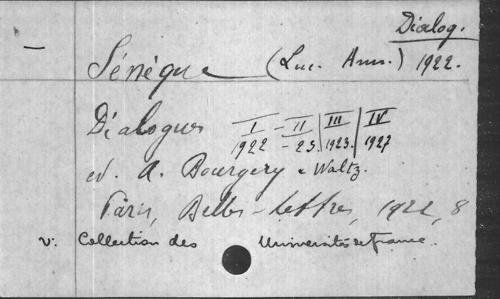 Dialog.
— Sénèque (Luc. Ann.) 1922.
Dialogues I - II | III | IV
1922 - 23. | 1923. | 1927
ed. A. Bourgery e Waltz.
Paris, Belles-Lettres, 1922, 8
v. Collection des Universités de France.